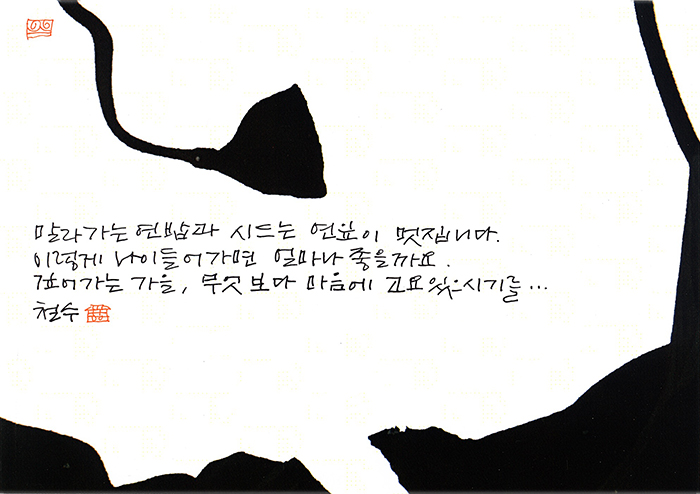 말라가는 연밥과 시드는 연잎이 멋집니다.
이렇게 나이들어가면 얼마나 좋을까요.
깊어가는 가을, 무엇보다 마음에 고요있으시기를...
철수